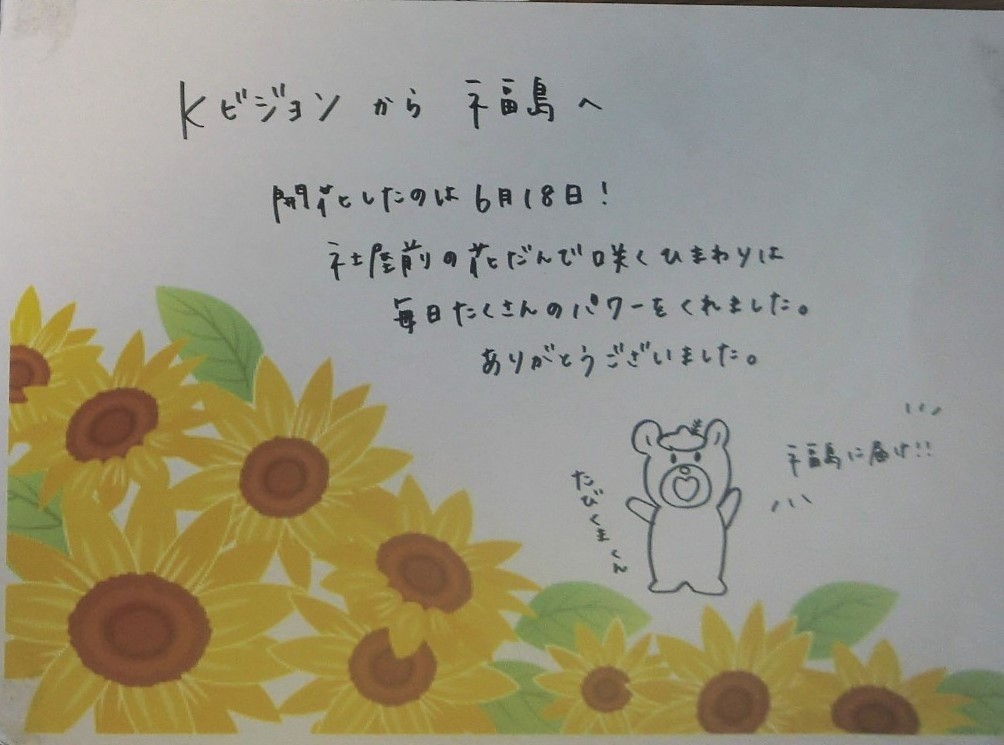 Kビジョン から 福島へ
開花したのは6月18日！
社屋前の花だんで咲くひまわりは
毎日たくさんのパワーをくれました。
ありがとうございました。
たびくまくん
福島に届け!!